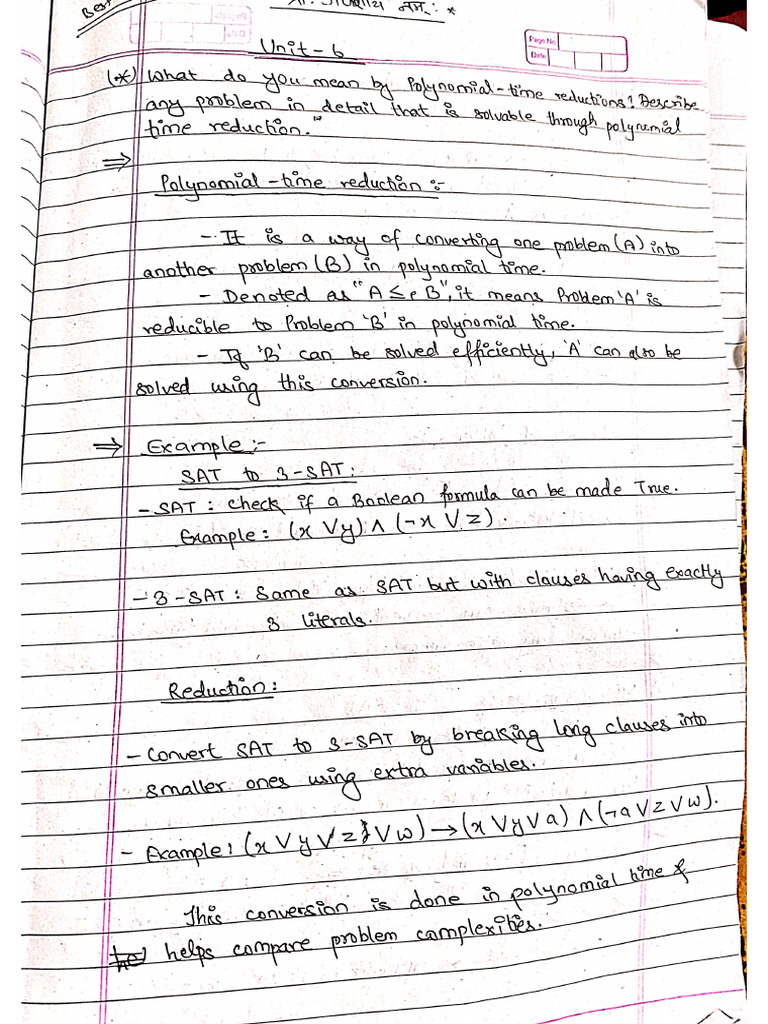 Best
नमः *
Page No
Date
Unit-6
(*) What do you mean by Polynomial-time reductions? Describe
any problem in detail that is solvable through polynomial
time reduction."
⇒
Polynomial-time reduction :-
- It is a way of converting one problem (A) into
another problem (B) in polynomial time.
- Denoted as "A ≤p B", it means Problem 'A' is
reducible to Problem 'B' in polynomial time.
- If 'B' can be solved efficiently, 'A' can also be
solved using this conversion.
⇒ Example :-
SAT to 3-SAT:
- SAT : check if a Boolean formula can be made True.
Example : (x V y) ∧ (¬x V z).
- 3-SAT : Same as SAT but with clauses having exactly
3 literals.
Reduction :
- Convert SAT to 3-SAT by breaking long clauses into
smaller ones using extra variables.
- Example : (x V y V z V w) → (x V y V a) ∧ (¬a V z V w).
This conversion is done in polynomial time &
helps compare problem complexities.